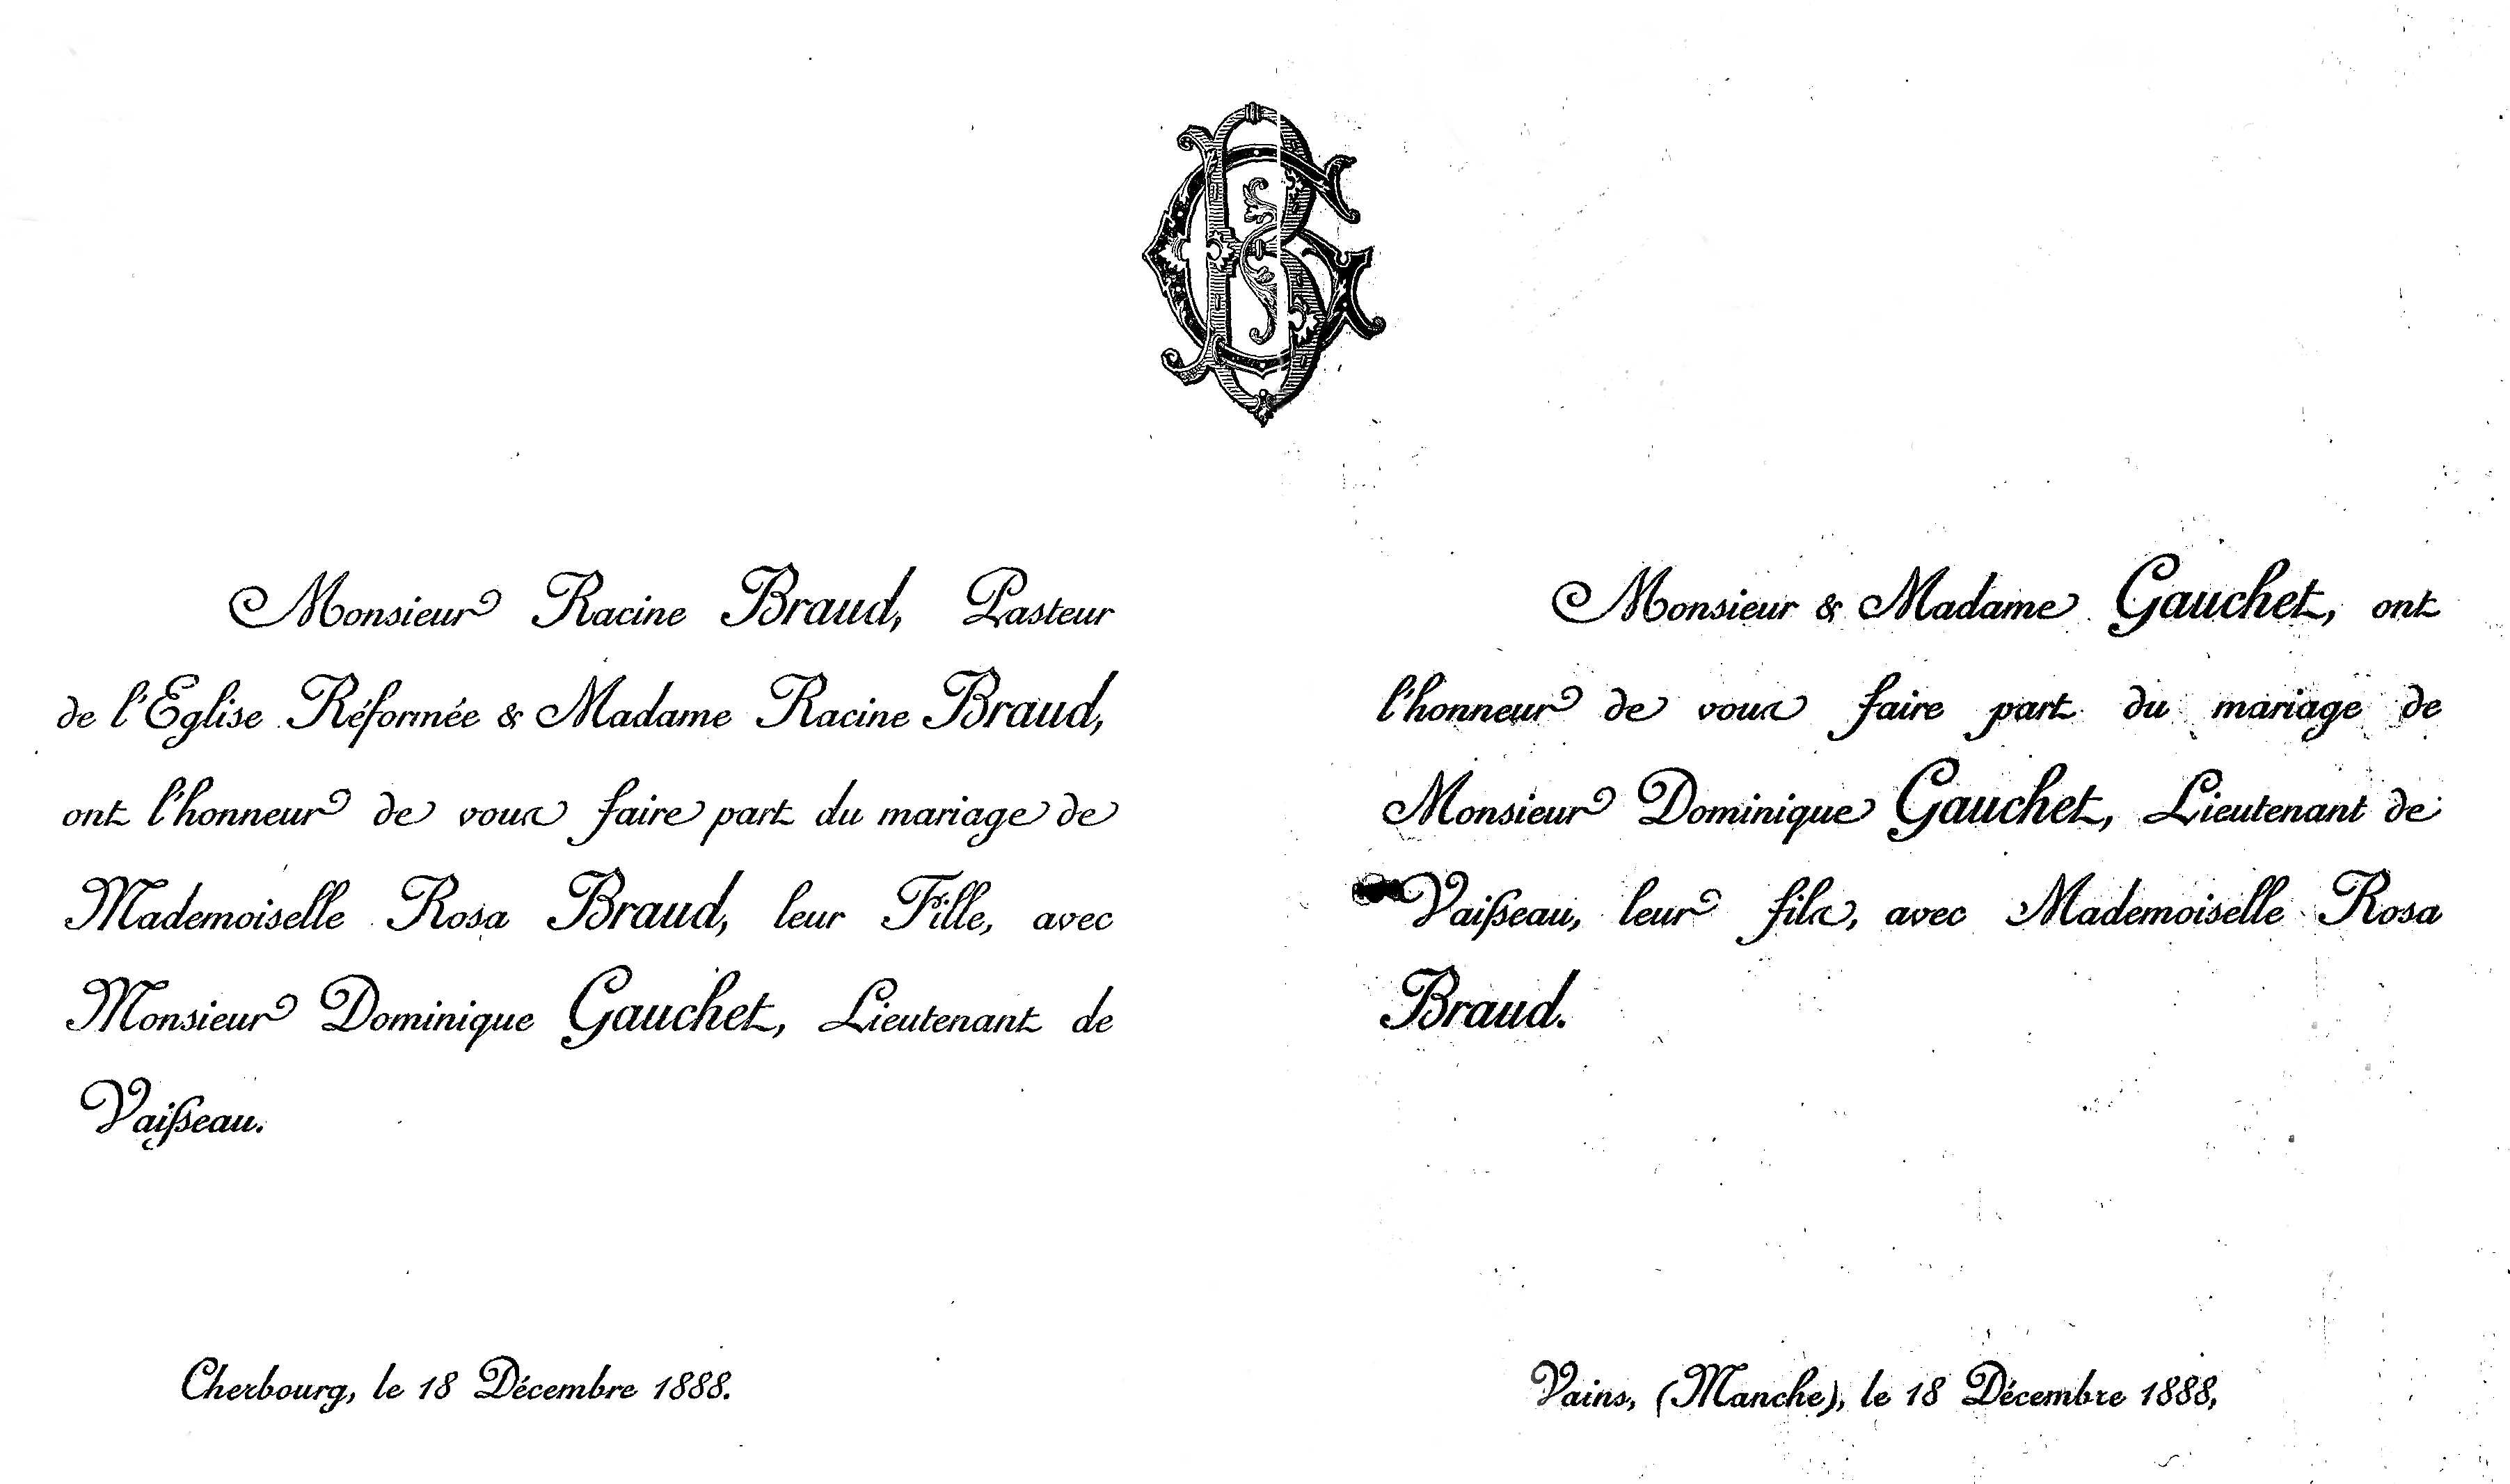 GB
Monsieur Racine Braud, Pasteur
de l'Eglise Réformée & Madame Racine Braud,
ont l'honneur de vous faire part du mariage de
Mademoiselle Rosa Braud, leur Fille, avec
Monsieur Dominique Gauchet, Lieutenant de
Vaisseau.
Cherbourg, le 18 Décembre 1888.
Monsieur & Madame Gauchet, ont
l'honneur de vous faire part du mariage de
Monsieur Dominique Gauchet, Lieutenant de
Vaisseau, leur fils, avec Mademoiselle Rosa
Braud.
Vains, (Manche), le 18 Décembre 1888,